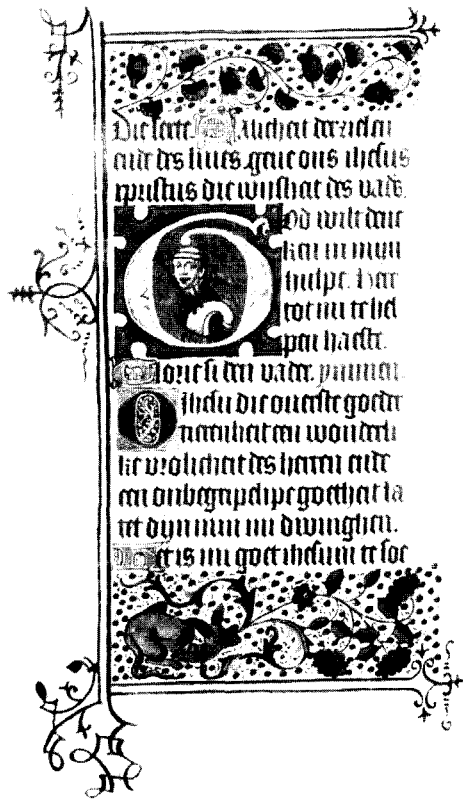 Die seete Salicheit der zielen
ende des liues. geue ons ihesus
xpristus die wijsheit des vad's.
God wilt denc
ken in mijn
hulpe. Here
tot mi te hel
pen haeste.
Glorie si den vader. ymnen.
O Ihesu die ouerste goeder
tierenheit een wonderli
ke vrolicheit des herten ende
een onbegripelike goetheit la
tet dyn min mi dwinghen.
Het is mi goet ihesum te soe